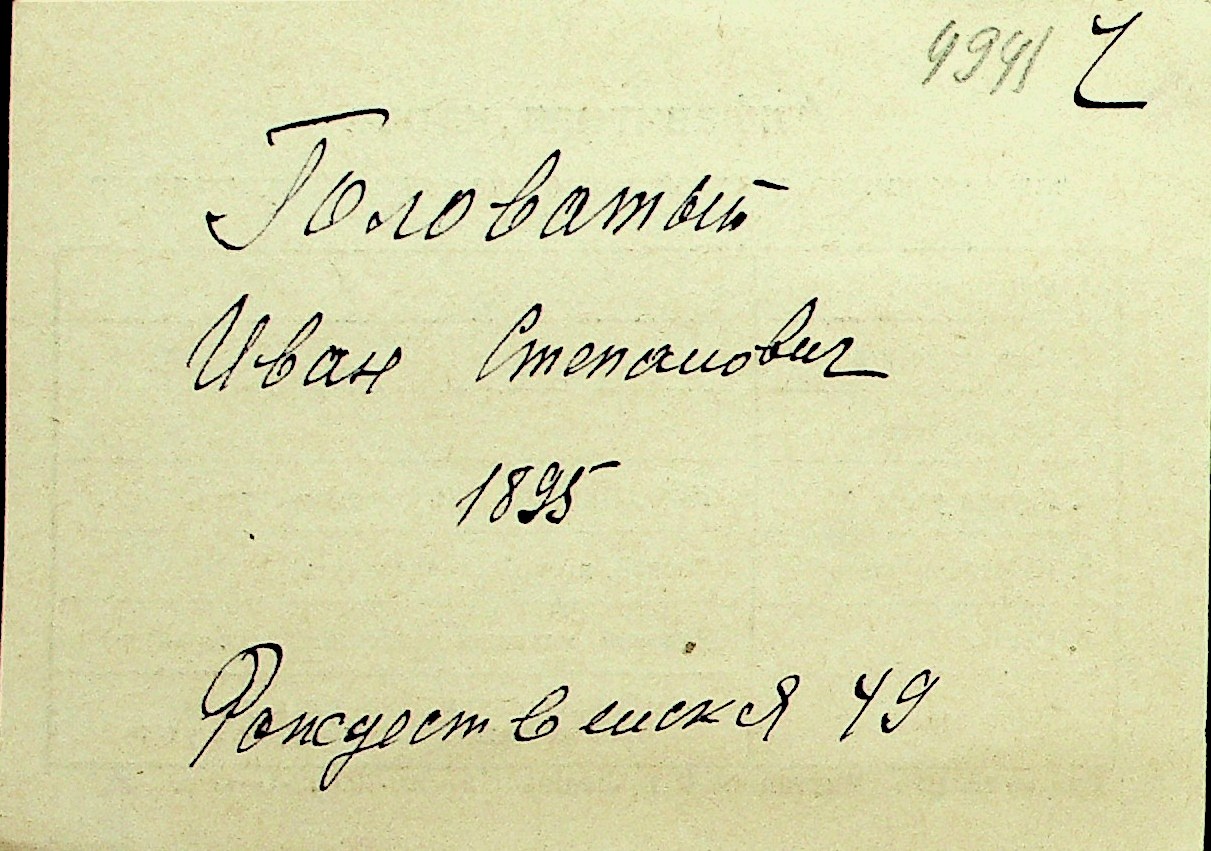 4941 Ч
Головатый
Иван Степанович
1895
Рождественскя 49